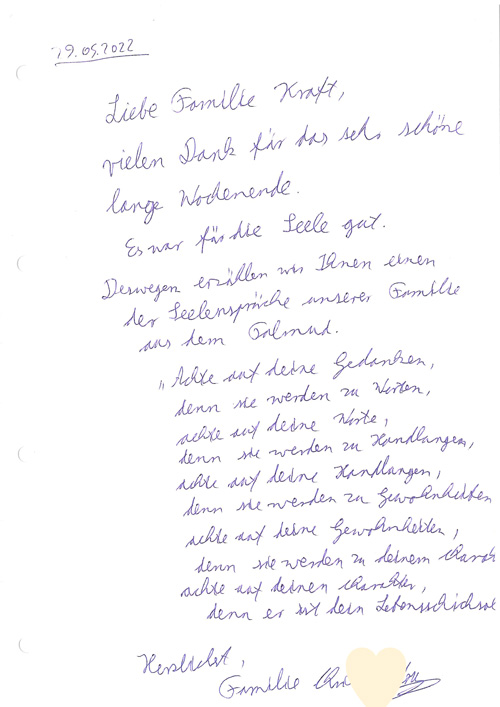 19.05.2022
Liebe Familie Kraft,
vielen Dank für das sehr schöne
lange Wochenende.
Es war für die Seele gut.
Deswegen erzählen wir Ihnen einen
der Seelensprüche unserer Familie
aus dem Talmud.
„Achte auf deine Gedanken,
denn sie werden zu Worten,
achte auf deine Worte,
denn sie werden zu Handlungen,
achte auf deine Handlungen,
denn sie werden zu Gewohnheiten
achte auf deine Gewohnheiten,
denn sie werden zu deinem Charak
achte auf deinen Charakter,
denn er ist dein Lebensschicksal
Herzlichst,
Familie